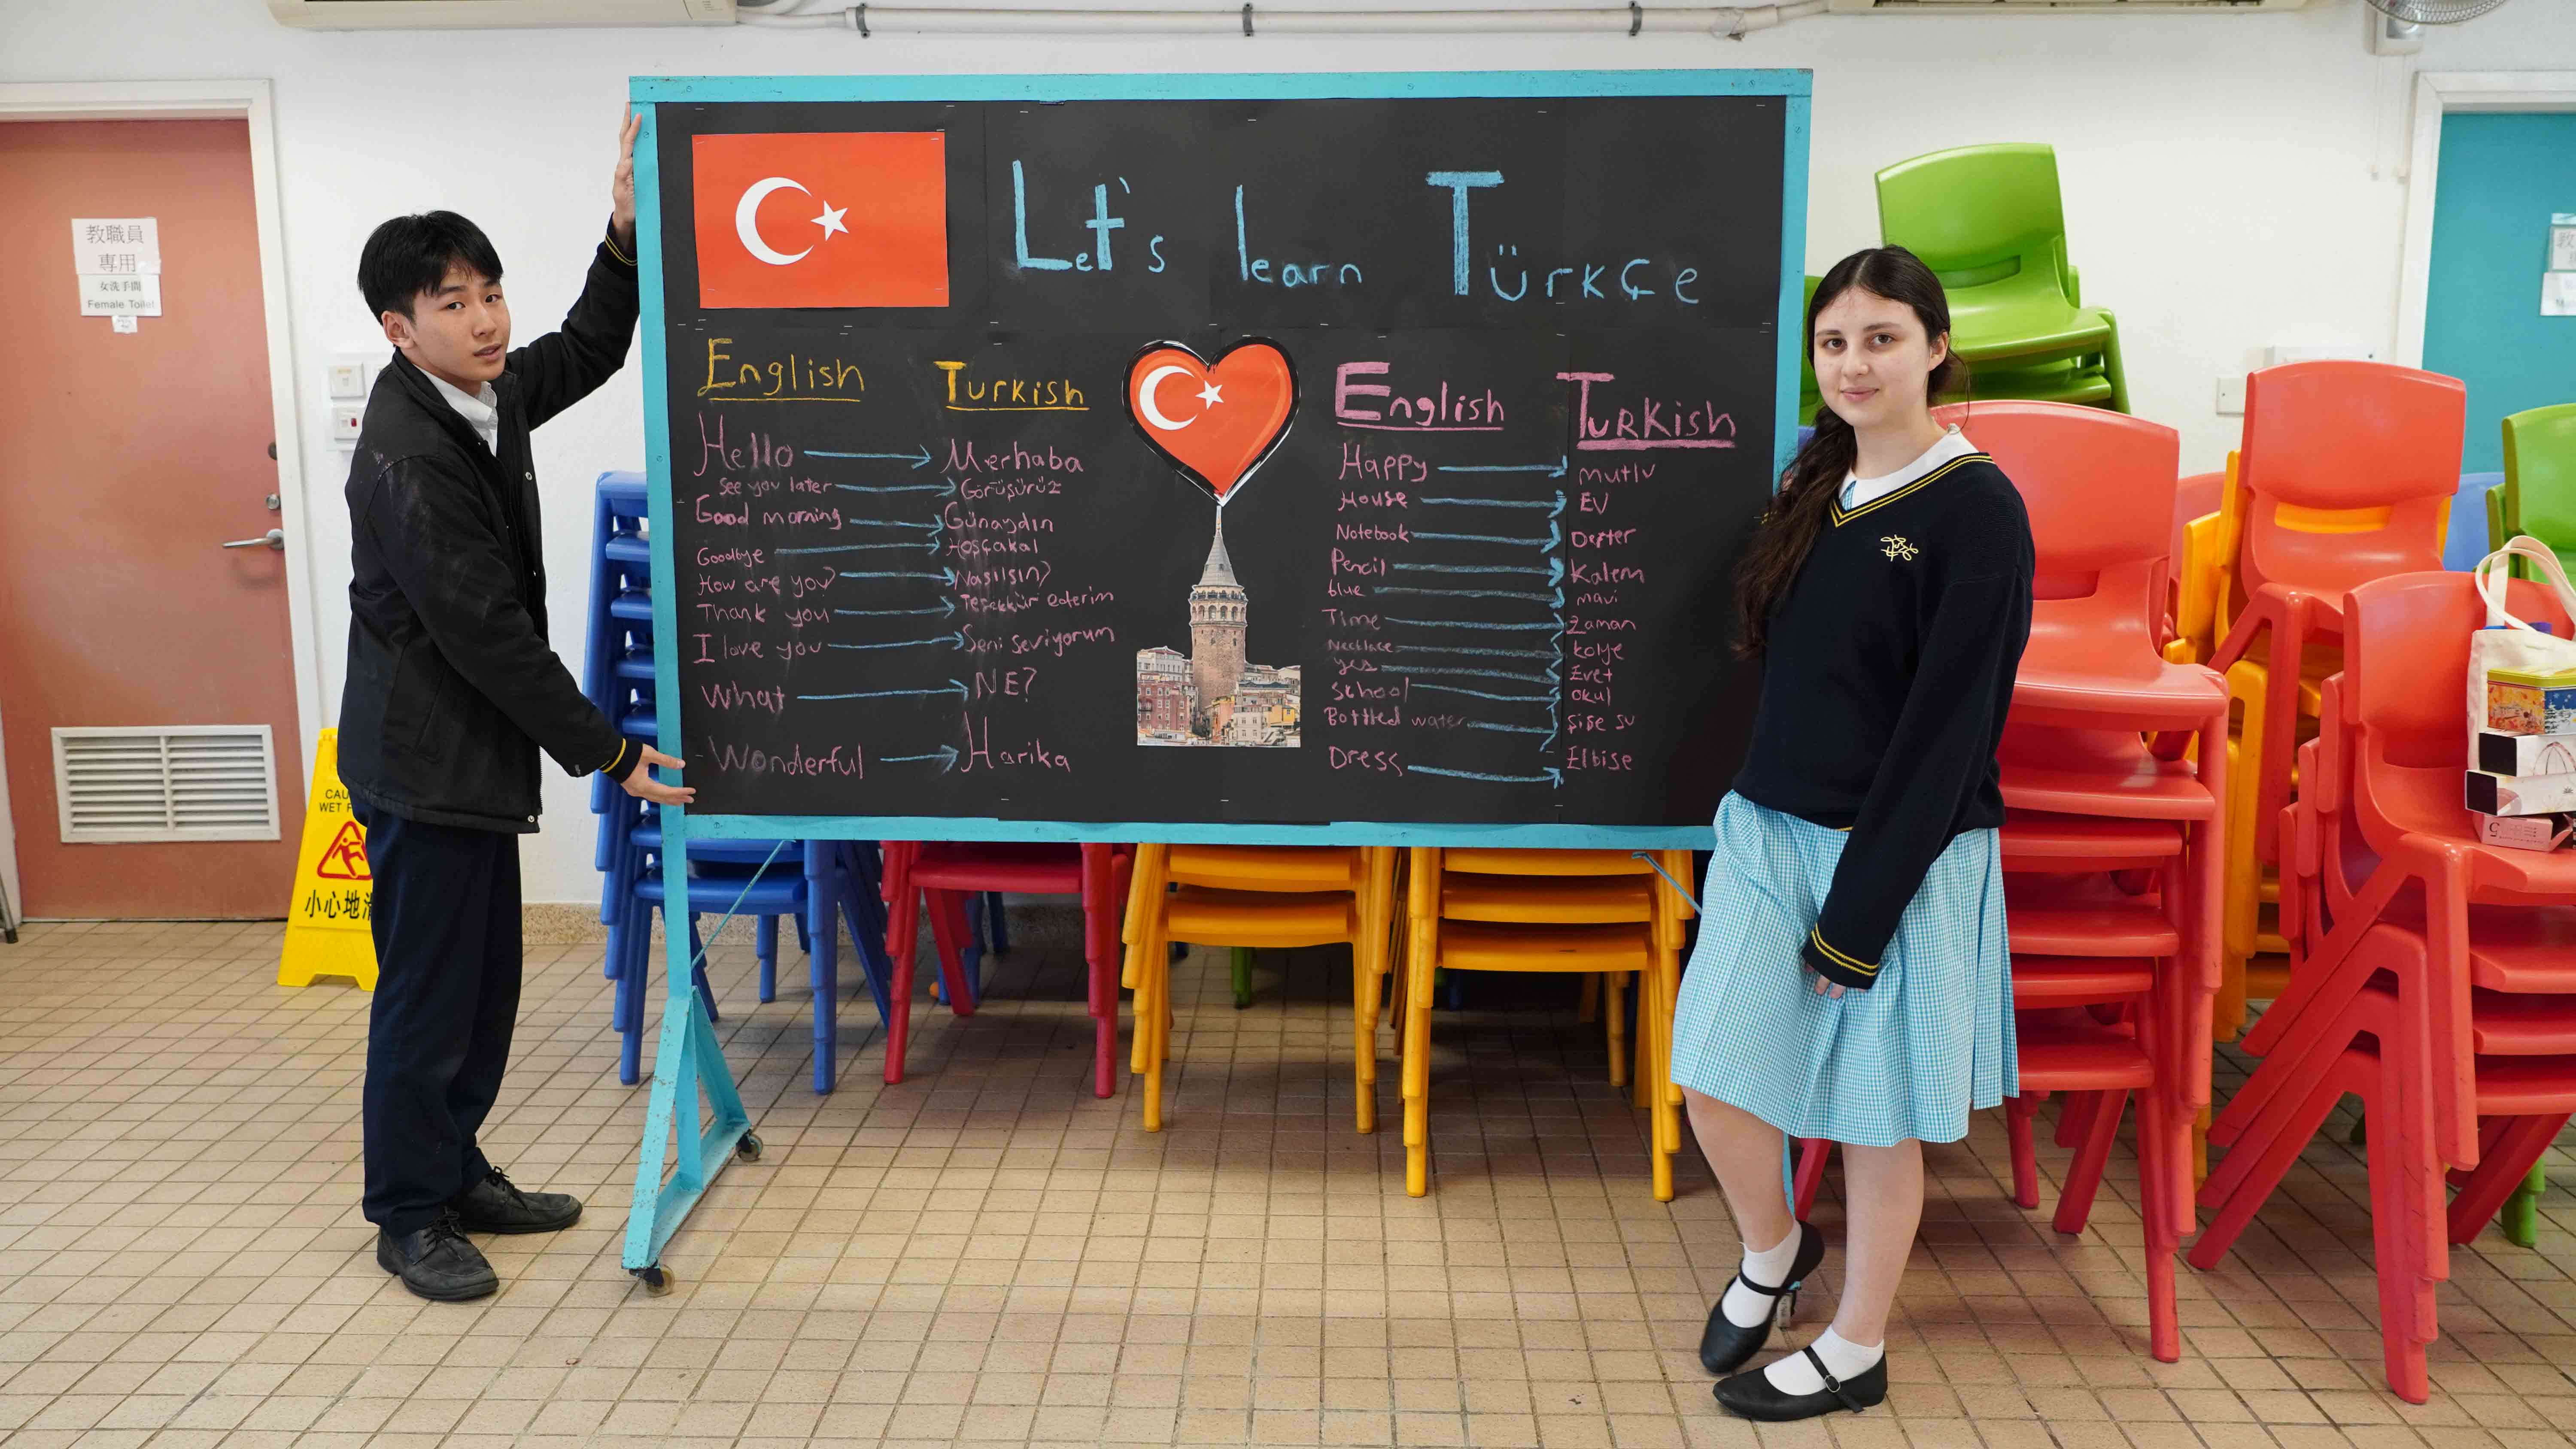 教職員
專用
女洗手間
Female Toilet
Let's learn TürkÇe
English Turkish
Hello Merhaba
See you later Görüşürüz
Good morning Günaydın
Goodbye Hoşçakal
How are you? Nasılsın?
Thank you Teşekkür ederim
I love you Seni seviyorum
What NE?
Wonderful Harika
English Turkish
Happy mutlu
House EV
Notebook Defter
Pencil Kalem
blue mavi
Time Zaman
Necklace kolye
yes Evet
School okul
Bottled water şişe su
Dress Elbise
CAU
WET F
小心地滑